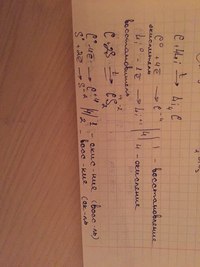 C + 4Li t→ Li₄C
C⁰ + 4ē → C⁻⁴ |4| 1 - восстановление
окислитель
Li⁰ - 1ē → Li⁺¹ |1| 4 - окисление
восстановитель
C + 2S t→ CS₂
C⁰ - 4ē → C⁺⁴ |4| 1 - окис-ние (восс-ль)
S⁰ + 2ē → S⁻² |2| 2 - восс-ние (ок-ль)